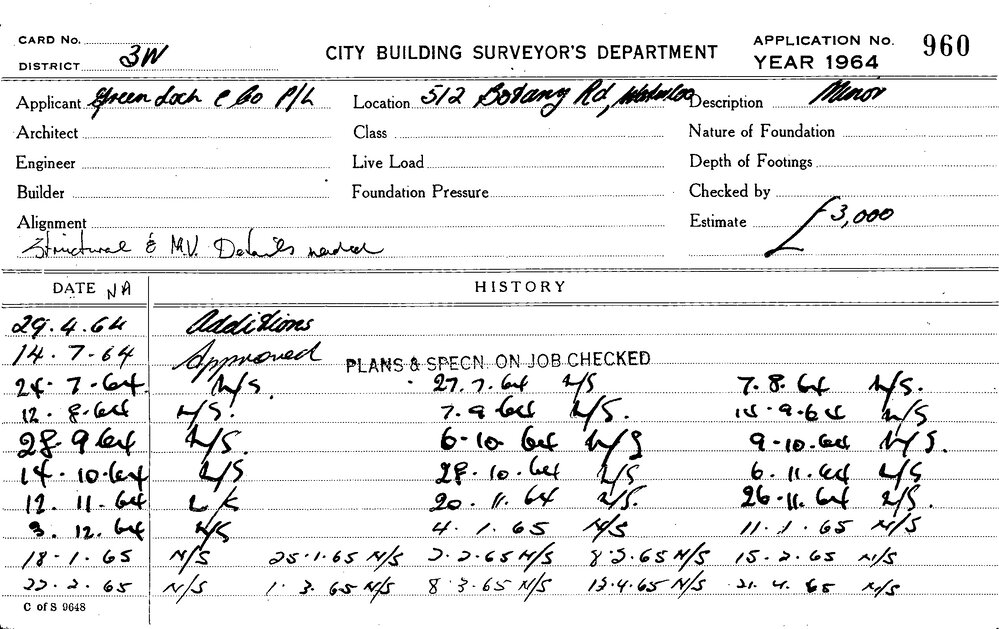 CARD No.
DISTRICT 3W
CITY BUILDING SURVEYOR'S DEPARTMENT
APPLICATION No. 960
YEAR 1964
Applicant Green Loch & Co P/L Location 512 Botany Rd, Waterloo Description Minor
Architect Class Nature of Foundation
Engineer Live Load Depth of Footings
Builder Foundation Pressure Checked by
Alignment Estimate £3,000
Structural & M.V. Details needed
DATE NA HISTORY
29.4.64 Additions
14.7.64 Approved PLANS & SPECN. ON JOB CHECKED
24.7.64 N/S. 27.7.64 N/S 7.8.64 N/S.
12.8.64 N/S. 7.9.64 N/S. 15.9.64 N/S
28.9.64 N/S. 6.10.64 N/S 9.10.64 N/S.
14.10.64 N/S 28.10.64 N/S 6.11.64 N/S
12.11.64 20.11.64 N/S. 26.11.64 N/S.
3.12.64 N/S 4.1.65 N/S 11.1.65 N/S
18.1.65 N/S 25.1.65 N/S 2.2.65 N/S 8.2.65 N/S 15.2.65 N/S
22.2.65 N/S 1.3.65 N/S 8.3.65 N/S 13.4.65 N/S 21.4.65 N/S
C of S 9648